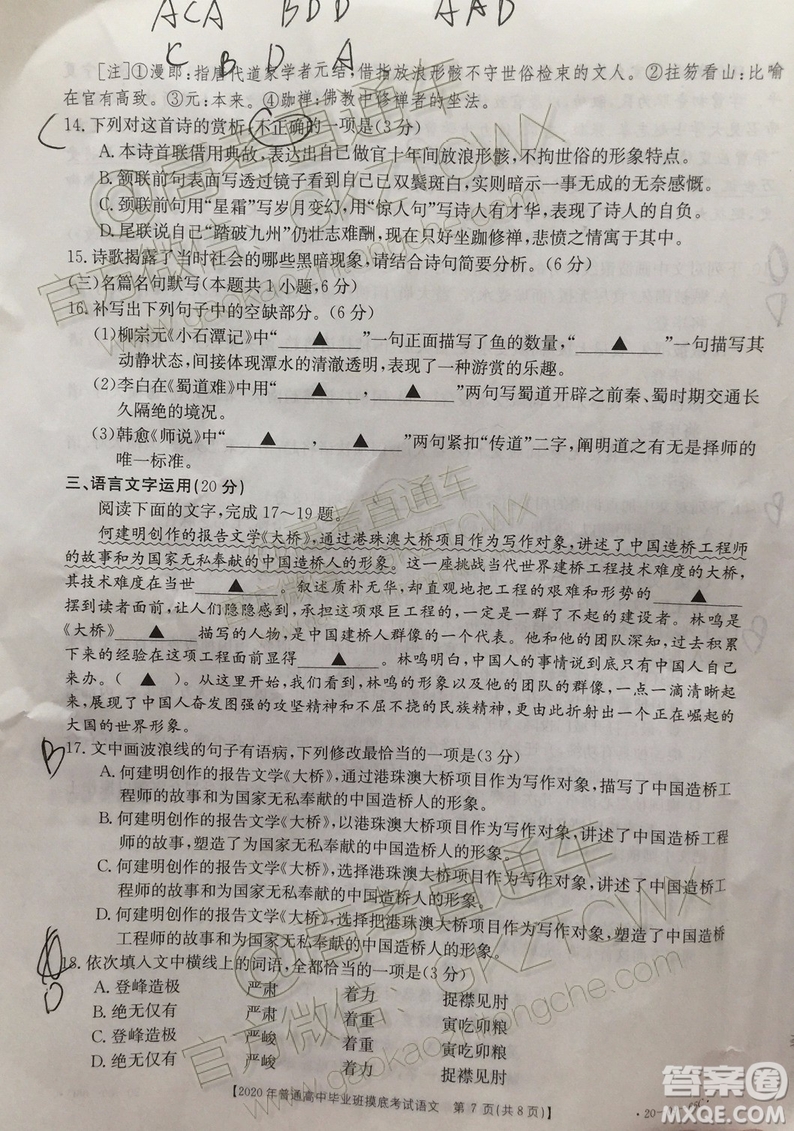 ACA BDD AAD
C B D A
[注]①漫郎：指唐代道家学者元结，借指放浪形骸不守世俗检束的文人。②拄笏看山：比喻
在官有高致。③元：本来。④跏禅：佛教中修禅者的坐法。
14.下列对这首诗的赏析，不正确的一项是(3分)
A.本诗首联借用典故，表达出自己做官十年间放浪形骸，不拘世俗的形象特点。
B.颔联前句表面写透过镜子看到自己已双鬓斑白，实则暗示一事无成的无奈感慨。
C.颈联前句用“星霜”写岁月变幻，用“惊人句”写诗人有才华，表现了诗人的自负。
D.尾联说自己“踏破九州”仍壮志难酬，现在只好坐跏修禅，悲愤之情寓于其中。
15.诗歌揭露了当时社会的哪些黑暗现象，请结合诗句简要分析。(6分)
(三)名篇名句默写(本题共1小题，6分)
16.补写出下列句子中的空缺部分。(6分)
(1)柳宗元《小石潭记》中“▲”一句正面描写了鱼的数量，“▲”一句描写其
动静状态，间接体现潭水的清澈透明，表现了一种游赏的乐趣。
(2)李白在《蜀道难》中用“▲，▲”两句写蜀道开辟之前秦、蜀时期交通长
久隔绝的境况。
(3)韩愈《师说》中“▲，▲”两句紧扣“传道”二字，阐明道之有无是择师的
唯一标准。
三、语言文字运用(20分)
阅读下面的文字，完成17～19题。
何建明创作的报告文学《大桥》，通过港珠澳大桥项目作为写作对象，讲述了中国造桥工程师
的故事和为国家无私奉献的中国造桥人的形象。这一座挑战当代世界建桥工程技术难度的大桥，
其技术难度在当世▲。叙述质朴无华，却直观地把工程的艰难和形势的▲
摆到读者面前，让人们隐隐感到，承担如此艰巨工程的，一定是一群了不起的建设者。林鸣是
《大桥》▲描写的人物，是中国建桥人群像的一个代表。他和他的团队深知，以前积累
下来的经验在这项工程面前显得▲。林鸣明白，中国人的事情说到底只有中国人自己
来办。（▲）。从这里开始，我们看到，林鸣的形象以及他的团队的群像，一点一滴清晰起
来，展现了中国人奋发图强的攻坚精神和不屈不挠的民族精神，更由此折射出一个正在崛起的
大国的世界形象。
B
17.文中画波浪线的句子有语病，下列修改最恰当的一项是(3分)
A.何建明创作的报告文学《大桥》，通过港珠澳大桥项目作为写作对象，描写了中国造桥工
程师的故事和为国家无私奉献的中国造桥人的形象。
B.何建明创作的报告文学《大桥》，以港珠澳大桥项目为写作对象，讲述了中国造桥工程师
的故事，塑造了为国家无私奉献的中国造桥人的形象。
C.何建明创作的报告文学《大桥》，选择港珠澳大桥项目作为写作对象，讲述了中国造桥工
程师的故事和为国家无私奉献的中国造桥人的形象。
D.何建明创作的报告文学《大桥》，选择把港珠澳大桥项目作为写作对象，塑造了中国造桥
工程师的故事和为国家无私奉献的中国造桥人的形象。
18.依次填入文中横线上的词语，全都恰当的一项是(3分)
D
A.登峰造极 严肃 着力 捉襟见肘
B.绝无仅有 严肃 着重 寅吃卯粮
C.登峰造极 严峻 着重 寅吃卯粮
D.绝无仅有 严峻 着力 捉襟见肘
【2020年普通高中毕业班摸底考试语文 第7页(共8页)】
·20
@高考直通车
官方微信：GKZTCWX
www.gaokaozhitongche.com
答案圈
MXQE.COM